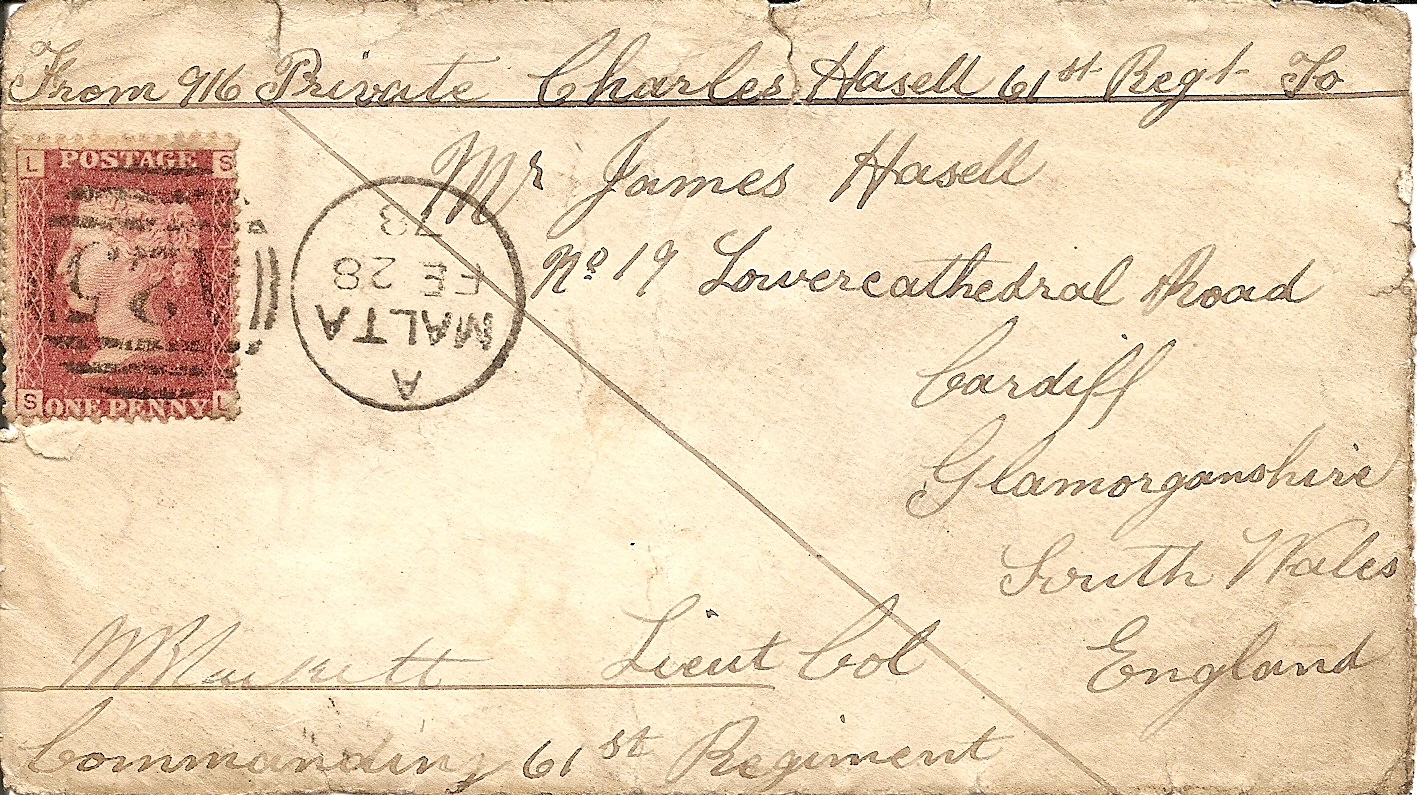 From 916 Private Charles Hasell 61st Regt To
Mr James Hasell
No 19 Lowercathedral Road
Cardiff
Glamorganshire
South Wales
England
L POSTAGE S
S ONE PENNY L
A
MALTA
FE 28
78
Lieut Col
Commanding 61st Regiment